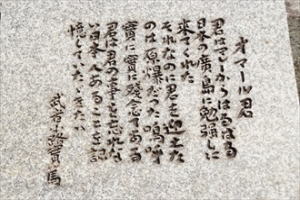 オマール君
君はマレーからはるばる
日本の廣島に勉強しに
来てくれた
それなのに君を迎えた
のは原爆だった嗚呼
實に實に残念である
君は君の事を忘れな
い日本人あることを記
憶していただきたい
武者小路實篤